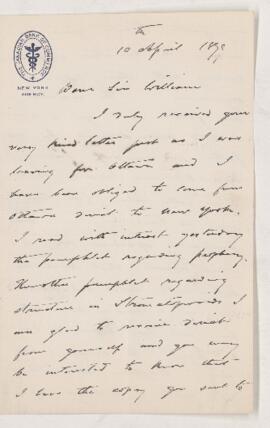 THE CANADIAN BANK OF COMMERCE
NEW YORK
10th April 1879
Dear Sir William
I duly received your
very kind letter just as I was
leaving for Ottawa and I
have been obliged to come from
Ottawa direct to New York.
I read with interest yesterday
the pamphlet regarding
The other pamphlet regarding
structure in Stromatoporoids I
am glad to receive direct
from yourself and you may
be interested to know that
I have the copy you sent to